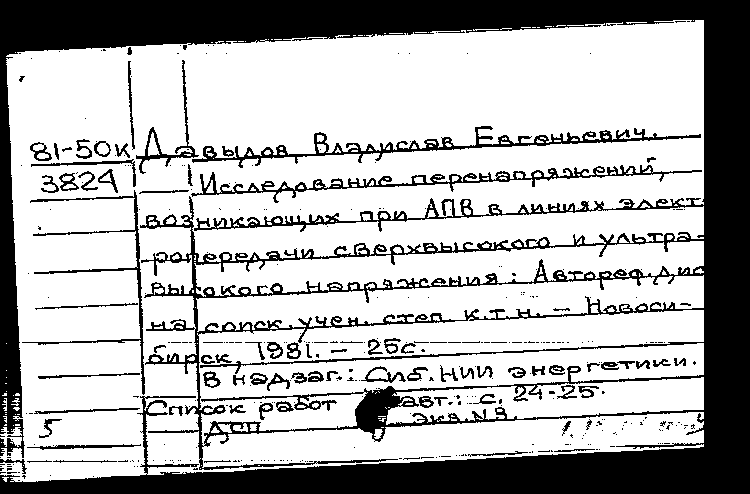 81-50к Давыдов, Владислав Евгеньевич.
3824 Исследование перенапряжений,
возникающих при АПВ в линиях элект-
ропередачи сверхвысокого и ультра-
высокого напряжения: Автореф. дис
на соиск. учен. степ к.т.н. – Новоси-
бирск, 1981. – 25с.
В надзаг.: Сиб. НИИ энергетики.
Список работ авт.: с. 24-25.
5 ДСП Экз. №8.